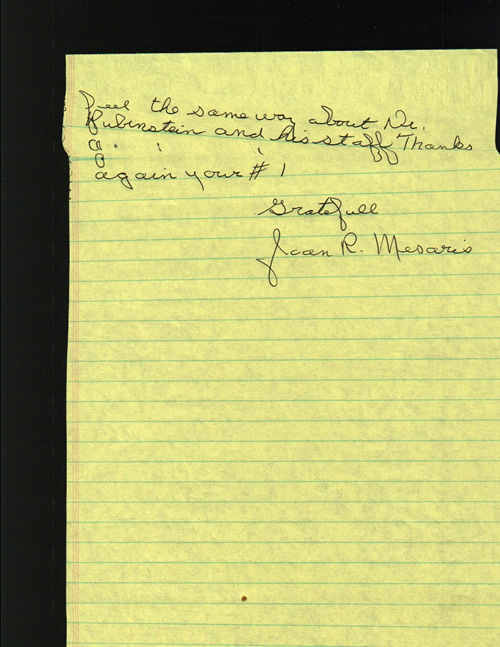 feel the same way about Dr.
Rubinstein and his staff Thanks
again your # 1
Gratefull
Joan R. Mesaris